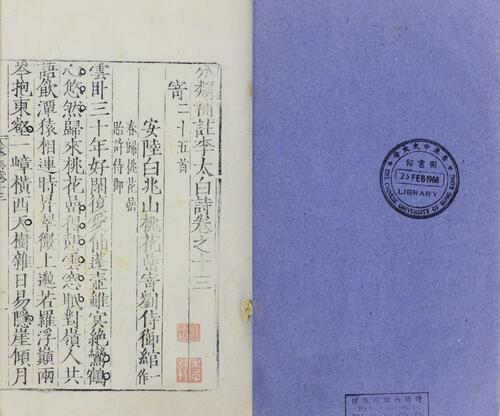 分類補註李太白詩卷之十三
寄二十五首
安陸白兆山桃花巖寄劉侍御綰一作
春歸桃花巖
貽許侍御
雲臥三十年好閑復愛仙蓬壺雖冥絕鸞鶴
心悠然歸來桃花巖得憩雲窓眠對嶺人共
語飲潭猿相連時昇翠微上邈若羅浮巔兩
岑抱東壑一嶂橫西天樹雜日易隱崖傾月
香港中文大學
圖書館
25 FEB 1968
LIBRARY
THE CHINESE UNIVERSITY OF HONG KONG